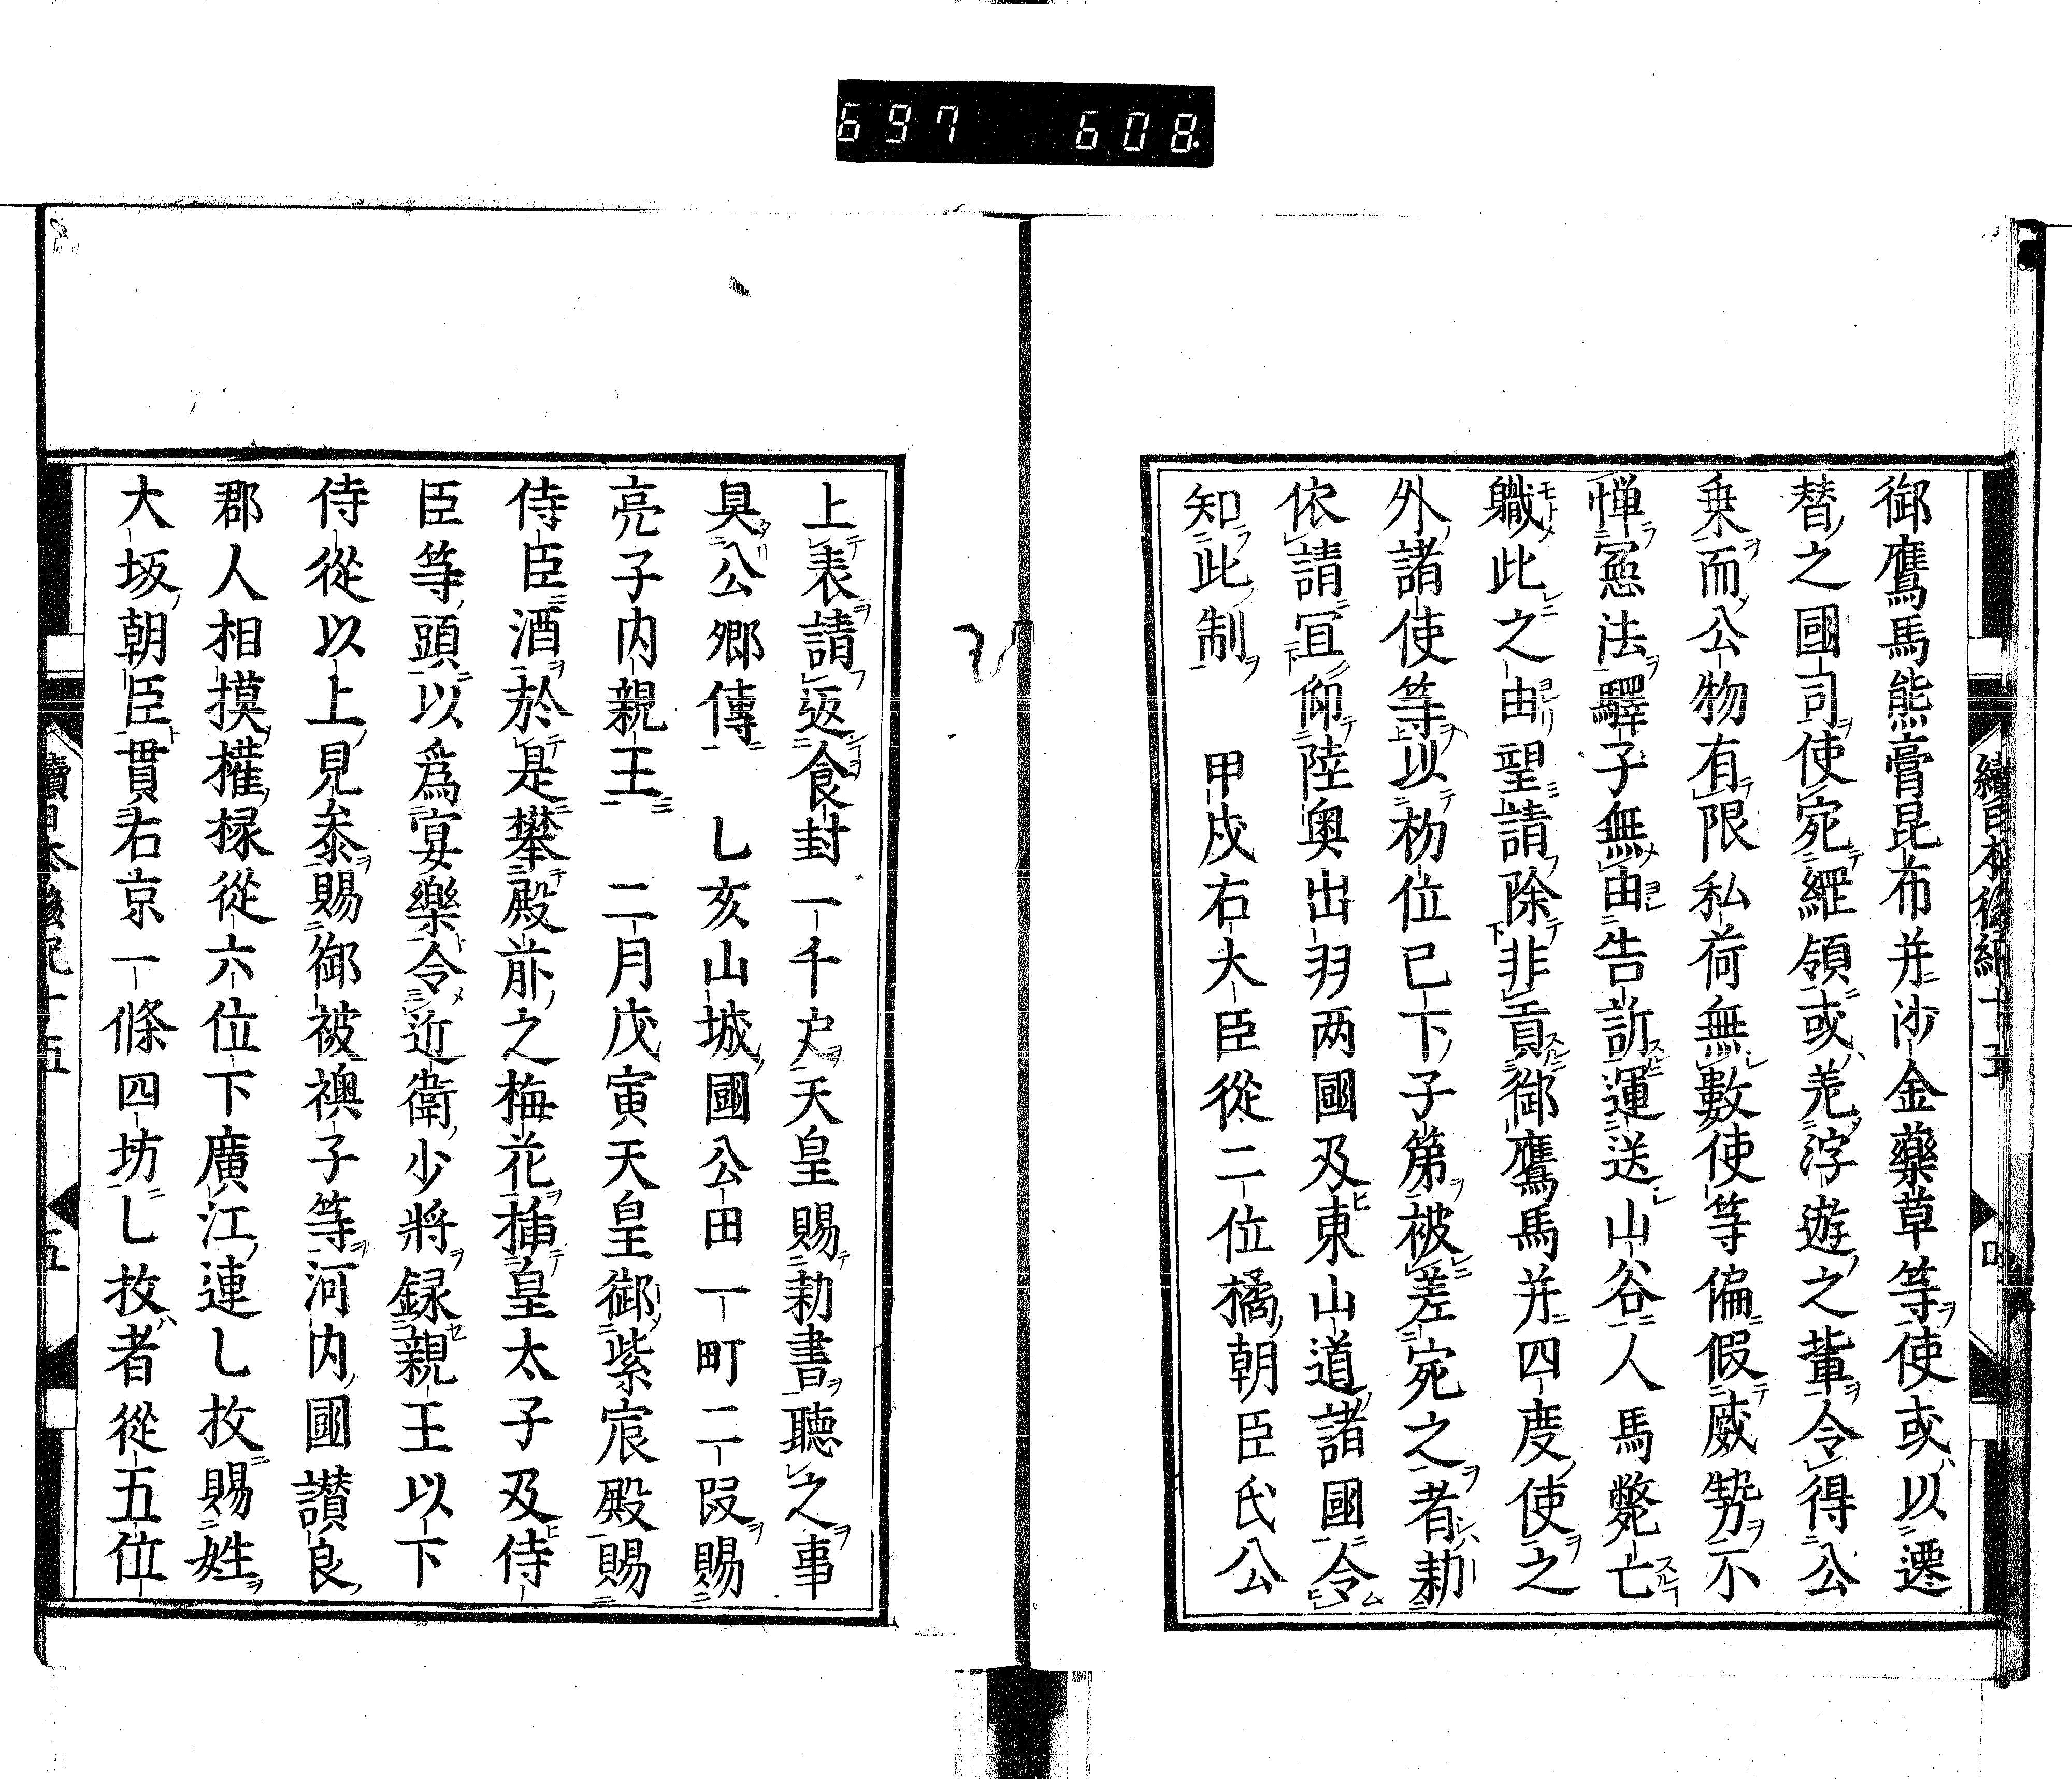 697 608
續日本後紀十五
御鷹馬熊膏昆布并沙金藥草等使或以遷
替之國司使宛綱領或差浮遊之輩令得公
乗而公物有限私荷無數使等偏假威勢不
憚憲法驛子無由告訴運送山谷人馬斃亡
軄此之由望請除非貢御鷹馬并四度使之
外諸使等以初位已下子第被差宛之者勅
依請冝仰陸奥出羽两國及東山道諸國令
知此制　甲戌右大臣從二位橘朝臣氏公
上表請返食封一千戸天皇賜勅書聽之事
具公卿傳　乚亥山城國公田一町二段賜
亮子内親王　二月戊寅天皇御紫宸殿賜
侍臣酒於是攀殿前之梅花挿皇太子及侍
臣等頭以爲宴樂令近衛少將録親王以下
侍從以上見参賜御被襖子等河内國讃良
郡人相摸權掾從六位下廣江連乚枚賜姓
大坂朝臣貫右京一條四坊乚枚者從五位
續日本後紀十五
五